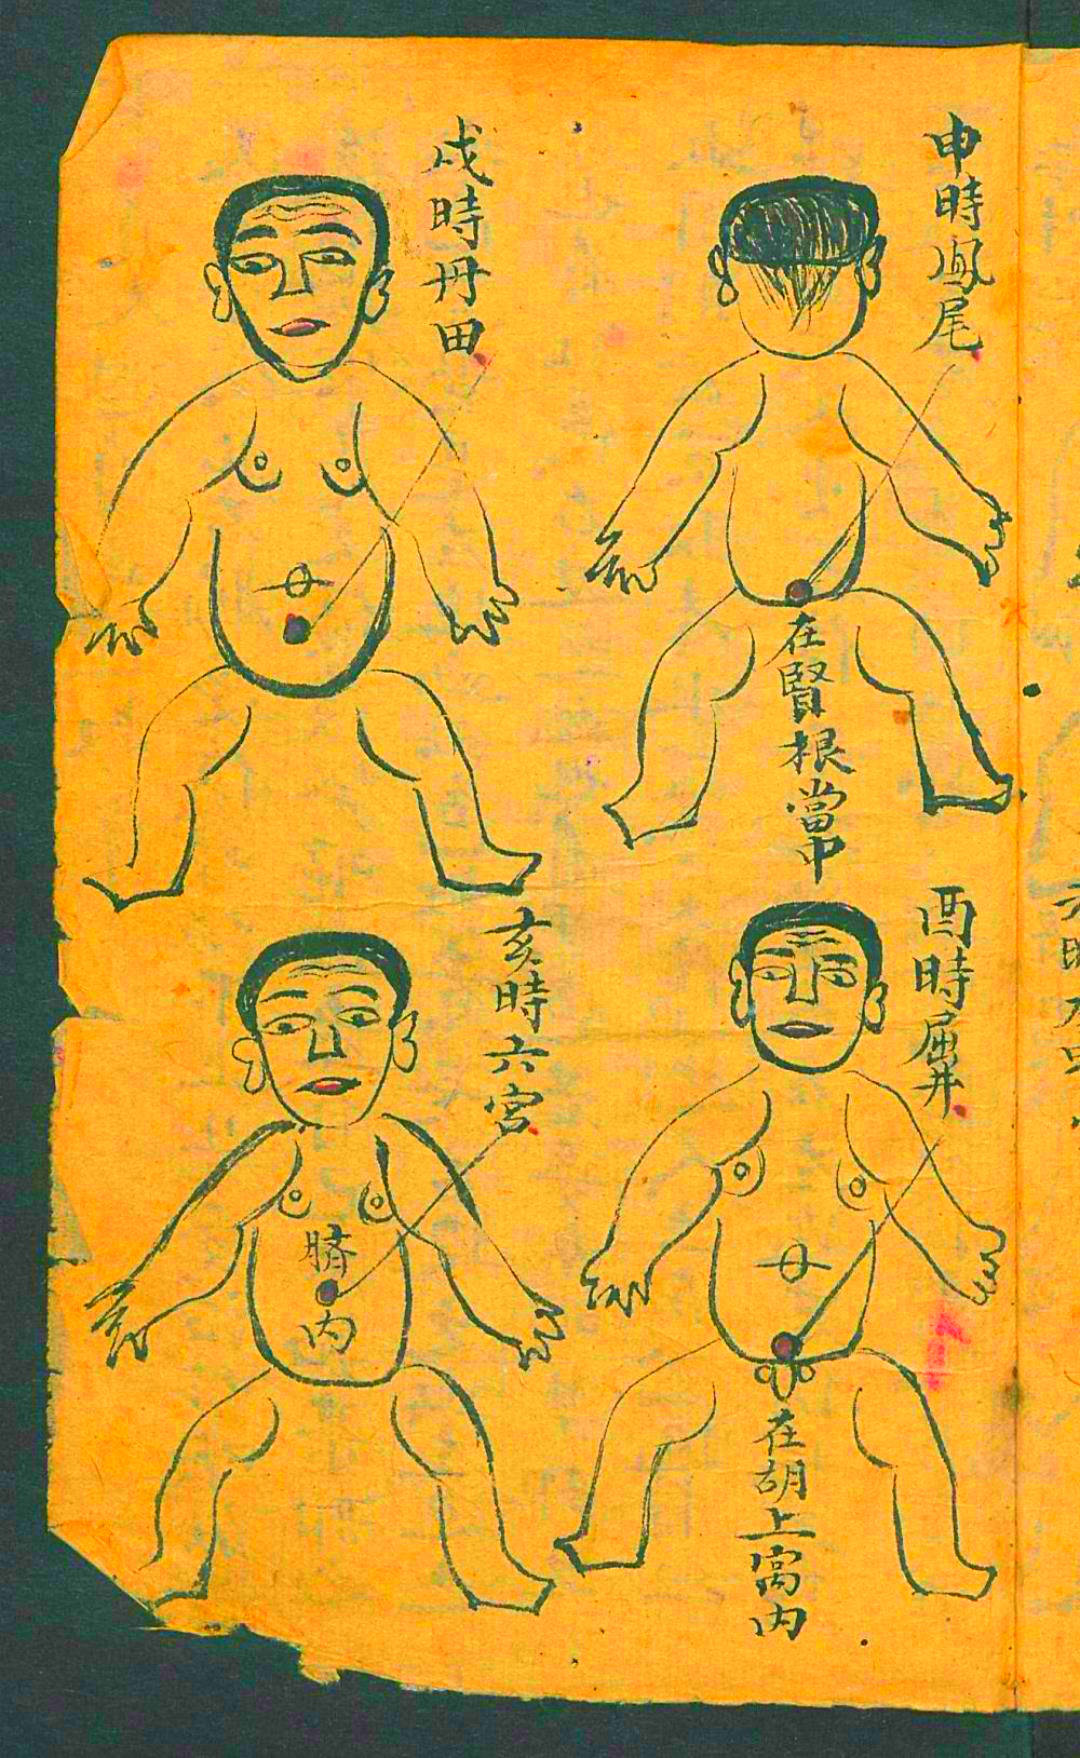 申時鳳尾
在賢根當中
酉時屈井
在胡上窩内
戌時丹田
亥時六宮
臍内